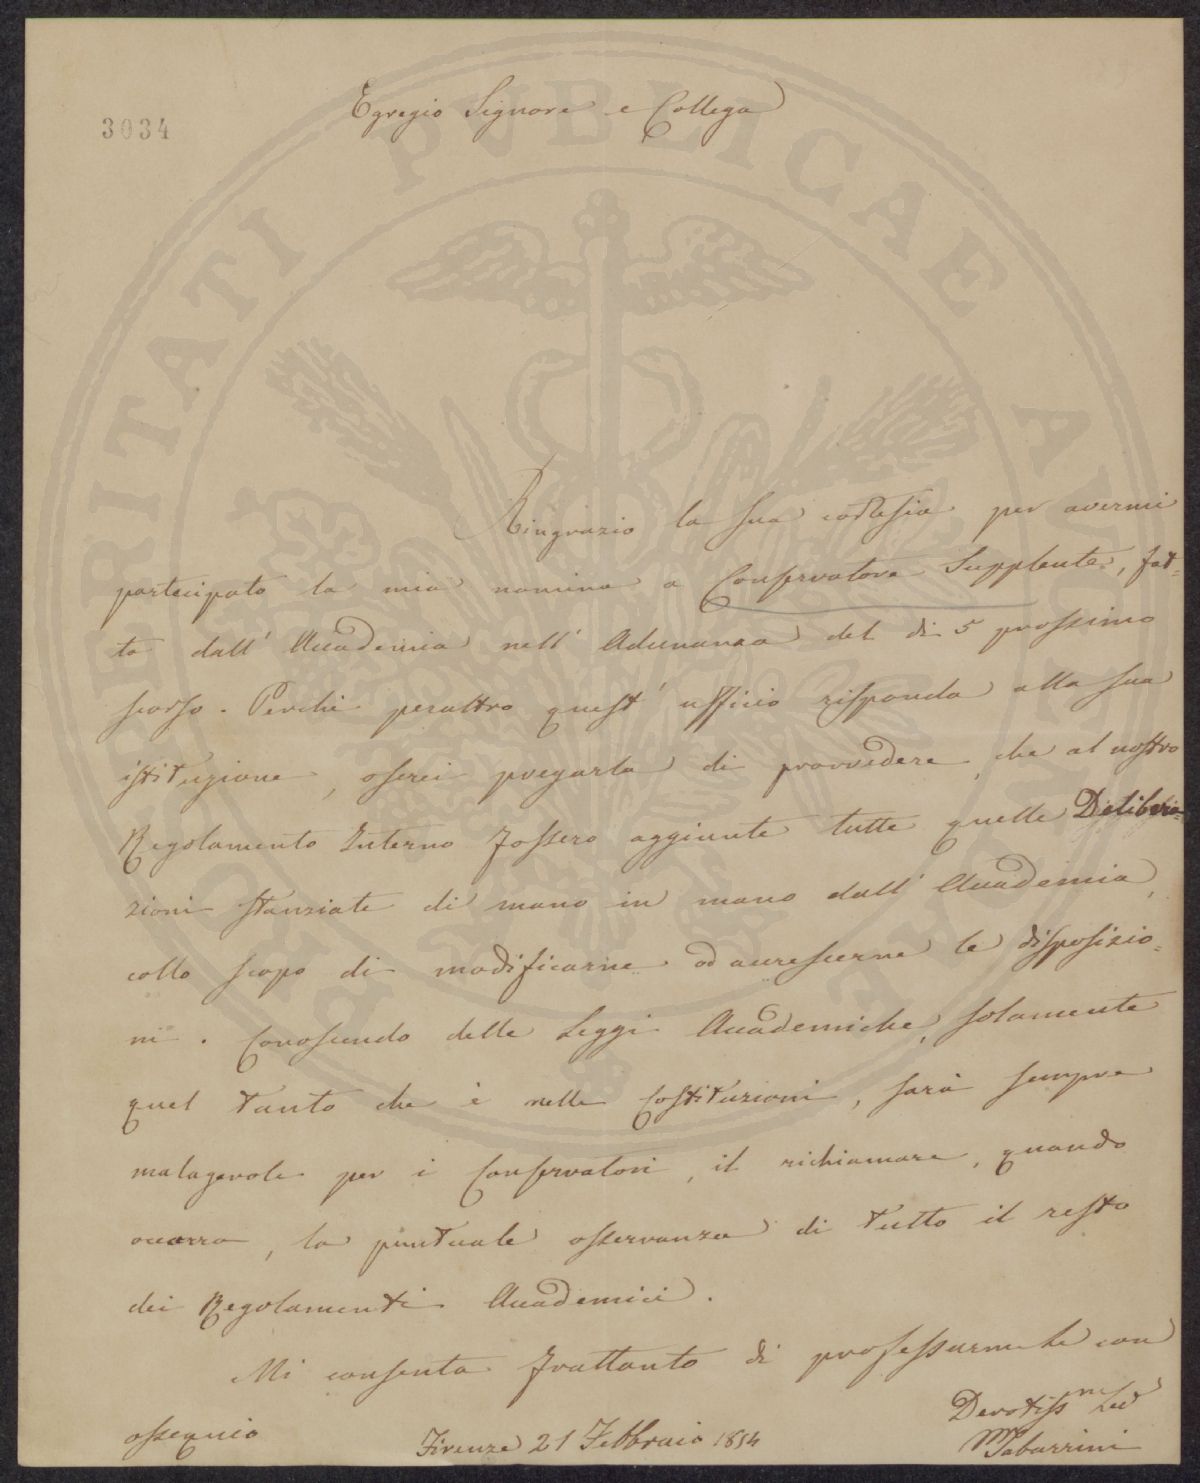 Egregio Signore e Collega
3034
Ringrazio la sua cortesia per avermi
partecipato la mia nomina a Conservatore Supplente, fat=
ta dall' Accademia nell' Adunanza del dì 5 prossimo
scorso. Perchè peraltro quest' ufficio risponda alla sua
istituzione, oserei pregarla di provvedere, che al nostro
Regolamento Interno fossero aggiunte tutte quelle Delibera=
zioni stanziate di mano in mano dall' Accademia,
collo scopo di modificarne od accrescerne le disposizio=
ni. Conoscendo delle Leggi Accademiche, solamente
quel tanto che è nelle Costituzioni, sarà sempre
malagevole per i Conservatori, il richiamare, quando
occorra, la puntuale osservanza di tutto il resto
dei Regolamenti Accademici.
Mi consenta frattanto di professarmele con
ossequio
Firenze 21 Febbraio 1854
Devotiss.mo
MTabarrini
PROSPERITATI PVBLICAE AVGENDAE